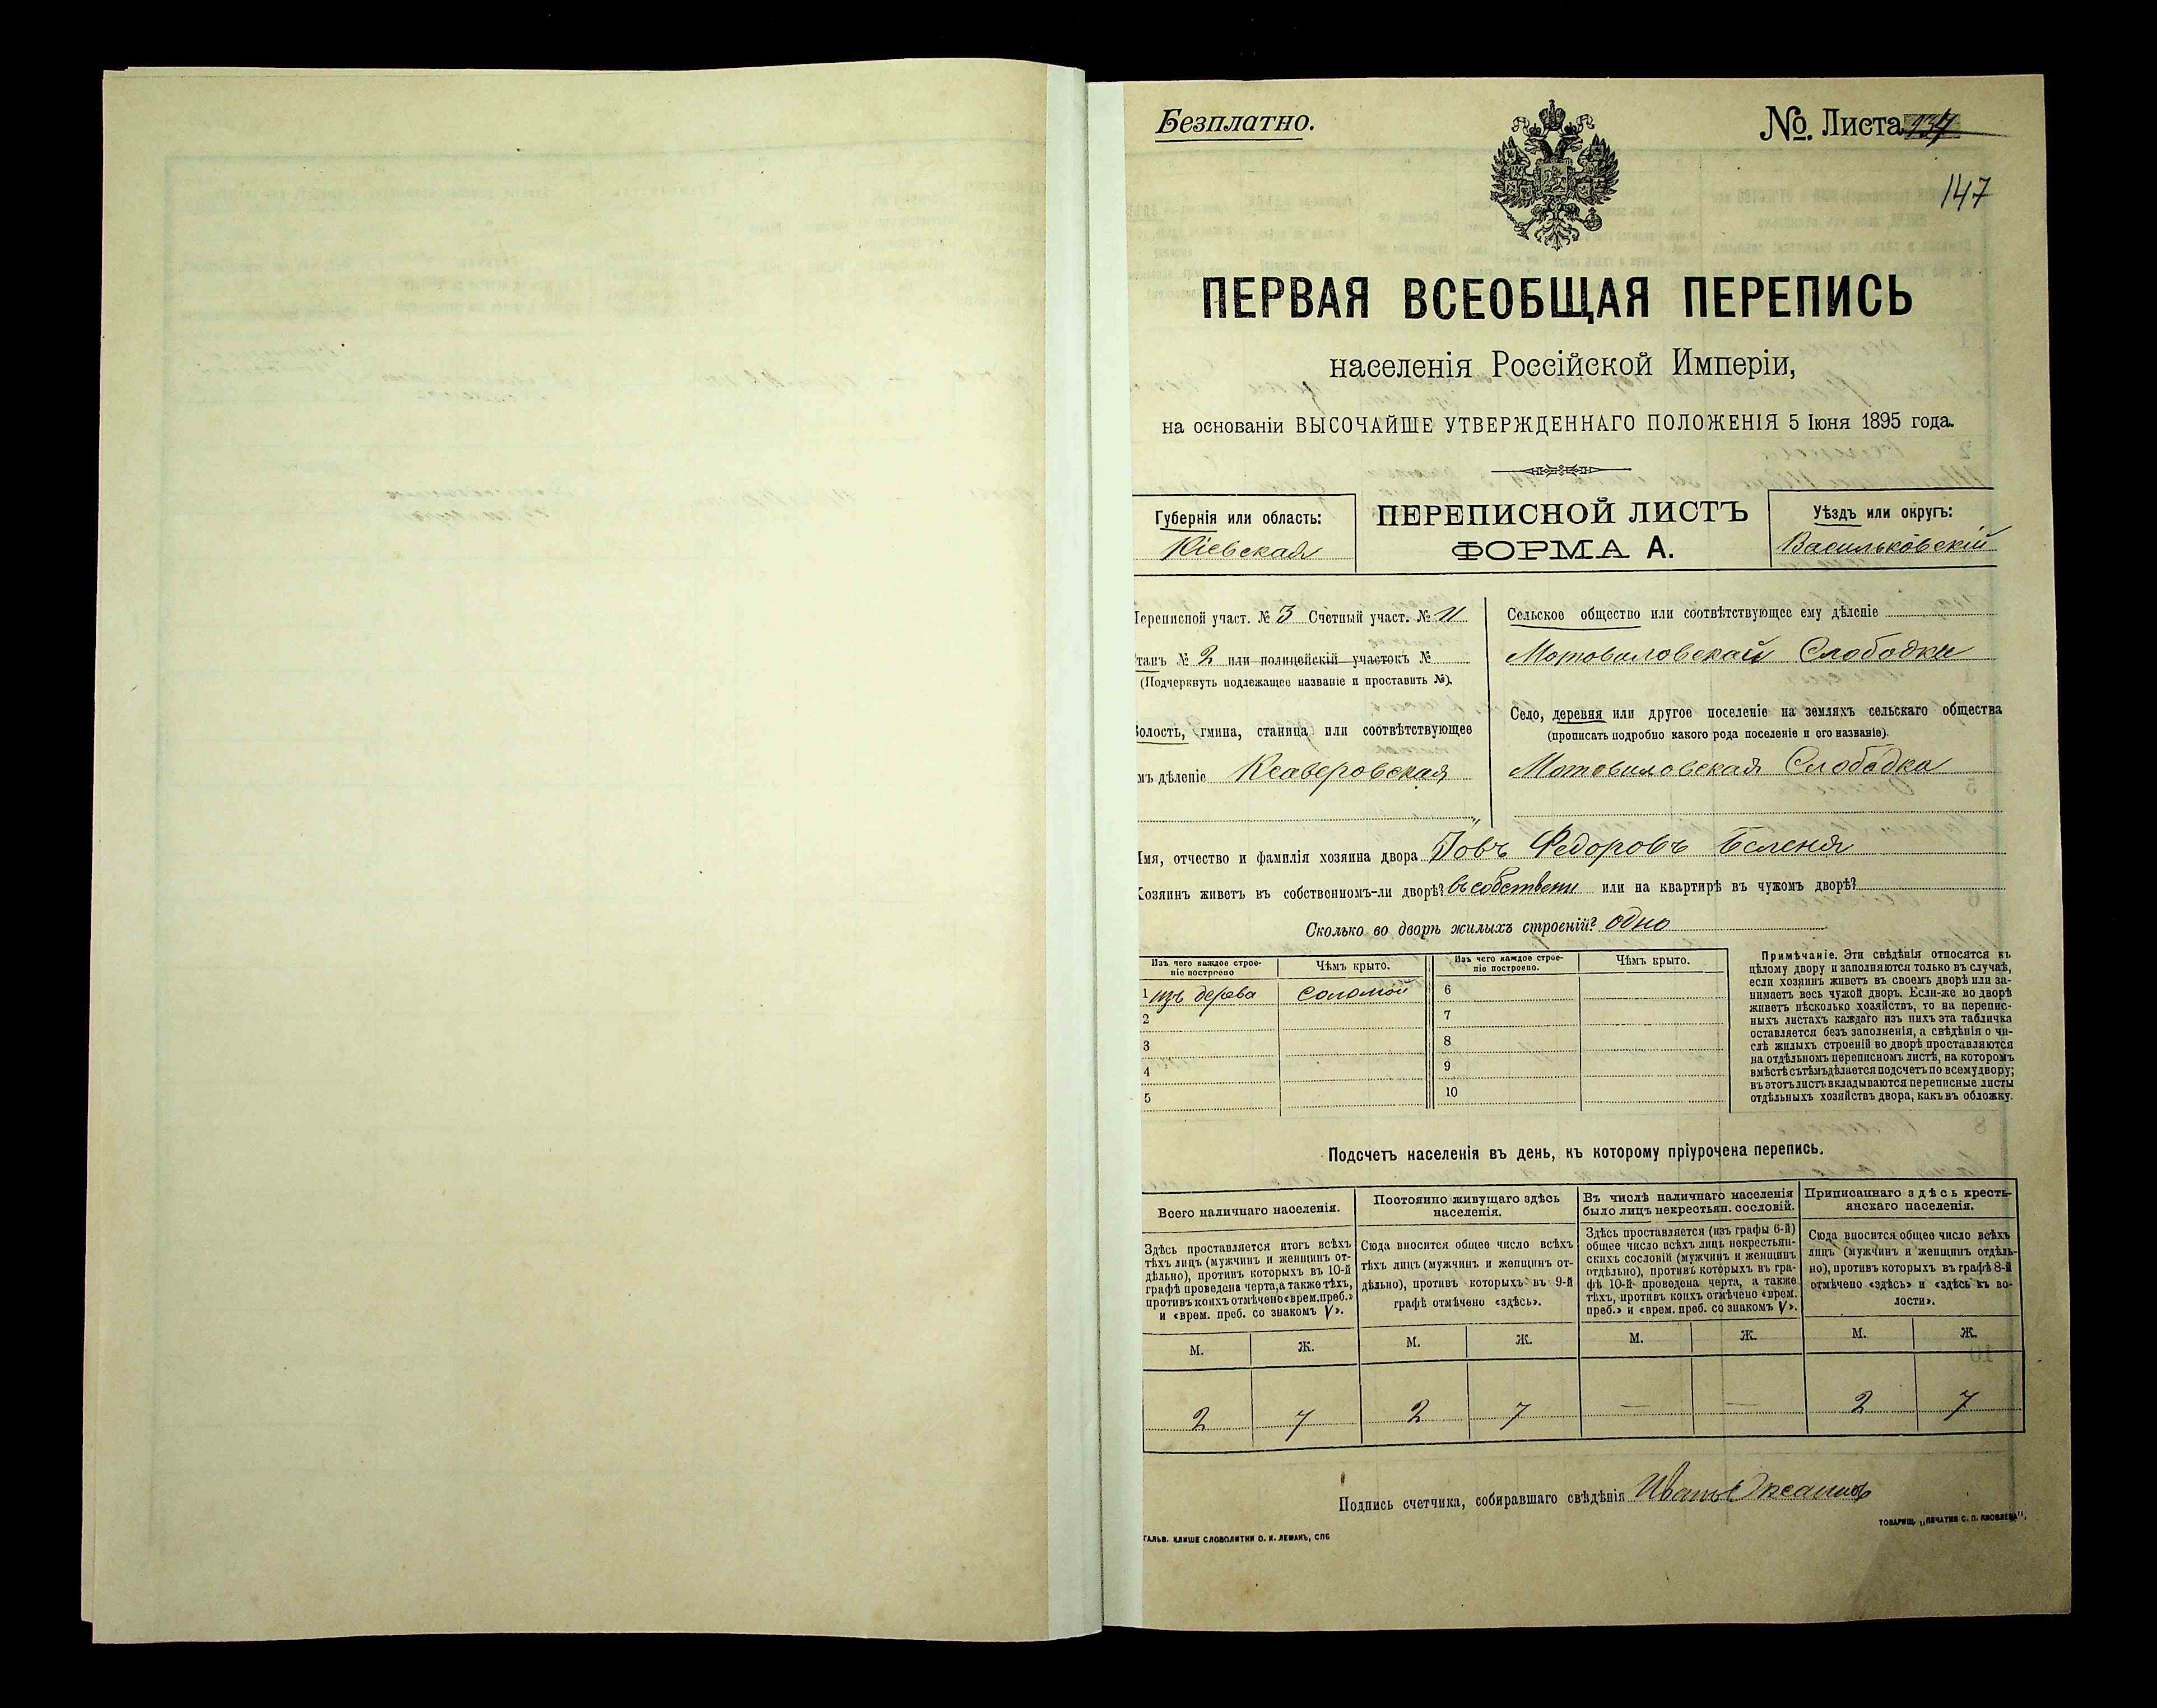 Безплатно.
№ Листа 137
147
ПЕРВАЯ ВСЕОБЩАЯ ПЕРЕПИСЬ
населенія Россійской Имперіи,
на основаніи ВЫСОЧАЙШЕ УТВЕРЖДЕННАГО ПОЛОЖЕНІЯ 5 Іюня 1895 года.
Губернія или область:
Кіевская
ПЕРЕПИСНОЙ ЛИСТЪ
ФОРМА А.
Уѣздъ или округъ:
Васильковскій
Переписной участ. № 3 Счетный участ. № 11
Станъ № 2 или полицейскій участокъ №
(Подчеркнуть подлежащее названіе и проставить №).
Волость, гмина, станица или соотвѣтствующее
имъ дѣленіе Ксаверовская
Сельское общество или соотвѣтствующее ему дѣленіе
Мотовиловской Слободки
Село, деревня или другое поселеніе на земляхъ сельскаго общества
(прописать подробно какого рода поселеніе и его названіе).
Мотовиловская Слободка
Имя, отчество и фамилія хозяина двора Іовъ Федоровъ Беленя
Хозяинъ живетъ въ собственномъ-ли дворѣ? въ собствени или на квартирѣ въ чужомъ дворѣ?
Сколько во дворѣ жилыхъ строеній? одно
Изъ чего каждое строе-
ніе построено
Чѣмъ крыто.
Изъ чего каждое строе-
ніе построено.
Чѣмъ крыто.
1 изъ дерева соломой 6
2 7
3 8
4 9
5 10
Примѣчаніе. Эти свѣдѣнія относятся къ
цѣлому двору и заполняются только въ случаѣ,
если хозяинъ живетъ въ своемъ дворѣ или за-
нимаетъ весь чужой дворъ. Если-же во дворѣ
живетъ нѣсколько хозяйствъ, то на перепис-
ныхъ листахъ каждаго изъ нихъ эта табличка
оставляется безъ заполненія, а свѣдѣнія о чи-
слѣ жилыхъ строеній во дворѣ проставляются
на отдѣльномъ переписномъ листѣ, на которомъ
вмѣстѣ съ тѣмъ дѣлается подсчетъ по всему двору;
въ этотъ листъ вкладываются переписные листы
отдѣльныхъ хозяйствъ двора, какъ въ обложку.
Подсчетъ населенія въ день, къ которому пріурочена перепись.
Всего наличнаго населенія.
Здѣсь проставляется итогъ всѣхъ
тѣхъ лицъ (мужчинъ и женщинъ от-
дѣльно), противъ которыхъ въ 10-й
графѣ проведена черта, а также тѣхъ,
противъ коихъ отмѣчено «врем. преб.»
и «врем. преб. со знакомъ V».
Постоянно живущаго здѣсь
населенія.
Сюда вносится общее число всѣхъ
тѣхъ лицъ (мужчинъ и женщинъ от-
дѣльно), противъ которыхъ въ 9-й
графѣ отмѣчено «здѣсь».
Въ числѣ наличнаго населенія
было лицъ некрестьян. сословій.
Здѣсь проставляется (изъ графы 6-й)
общее число всѣхъ лицъ некрестьян-
скихъ сословій (мужчинъ и женщинъ
отдѣльно), противъ которыхъ въ гра-
фѣ 10-й проведена черта, а также
тѣхъ, противъ коихъ отмѣчено «врем.
преб.» и «врем. преб. со знакомъ V».
Приписаннаго здѣсь кресть-
янскаго населенія.
Сюда вносится общее число всѣхъ
лицъ (мужчинъ и женщинъ отдѣль-
но), противъ которыхъ въ графѣ 8-й
отмѣчено «здѣсь» и «здѣсь къ во-
лости».
М. Ж. М. Ж. М. Ж. М. Ж.
2 7 2 7 — — 2 7
Подпись счетчика, собиравшаго свѣдѣнія Иванъ
ГАЛЬВ. КЛИШЕ СЛОВОЛИТНИ О. И. ЛЕМАНЪ, СПБ
ТОВАРИЩ. „ПЕЧАТНЯ С. П. ЯКОВЛЕВА".